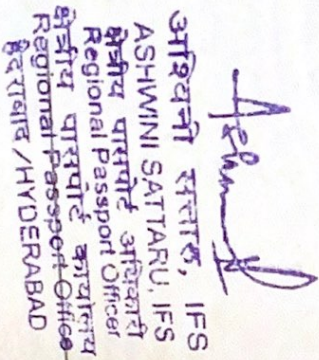 अश्विनी सत्तारु, IFS
ASHWINI SATTARU, IFS
क्षेत्रीय पासपोर्ट अधिकारी
Regional Passport Officer
क्षेत्रीय पासपोर्ट कार्यालय
Regional Passport Office
हैदराबाद /HYDERABAD